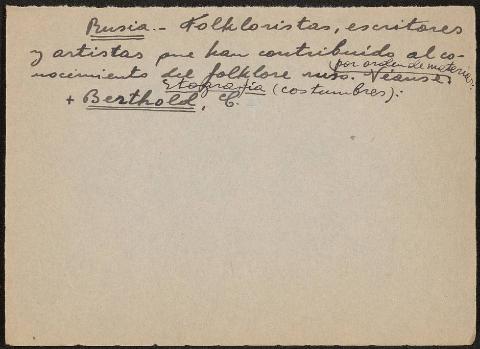 Rusia.- Folkloristas, escritores
y artistas que han contribuído al co-
nocimiento del folklore ruso. Véanse
por orden de materias:
Etografía (costumbres):
+ Berthold, E.